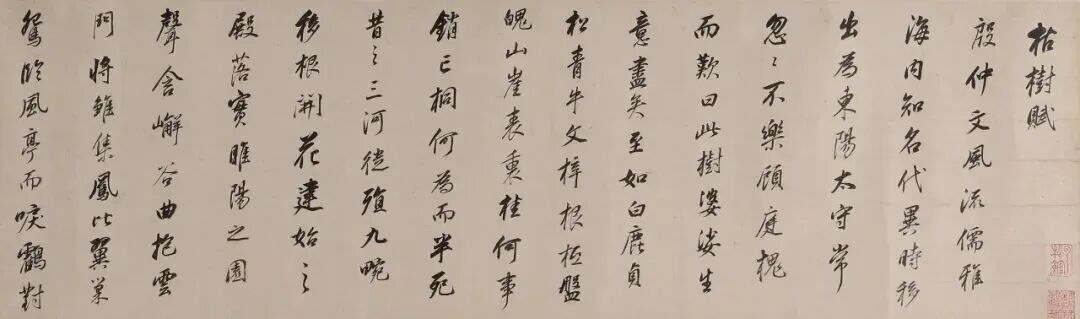 枯樹賦
殷仲文風流儒雅
海内知名代異時移
出為東陽太守常
忽〻不樂顧庭槐
而歎曰此樹婆娑生
意盡矣至如白鹿貞
松青牛文梓根柢盤
魄山崖表裏桂何事
銷亡桐何為而半死
昔之三河徙殖九畹
移根開花建始之
殿落實睢陽之園
聲含嶰谷曲抱雲
門將雛集鳳比翼巢
鴛臨風亭而唳鶴對